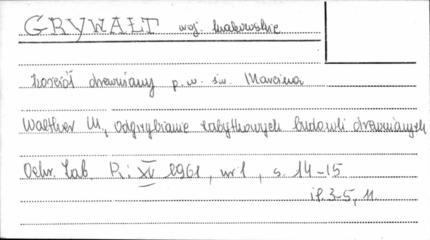 GRYWAŁT woj. krakowskie
kościół drewniany p.w. św. Marcina
Walther M, Odgrzybianie zabytkowych budowli drewnianych
Ochr. Zab. R: XV 1961, nr 1, s. 14-15
il. 3-5, 11.